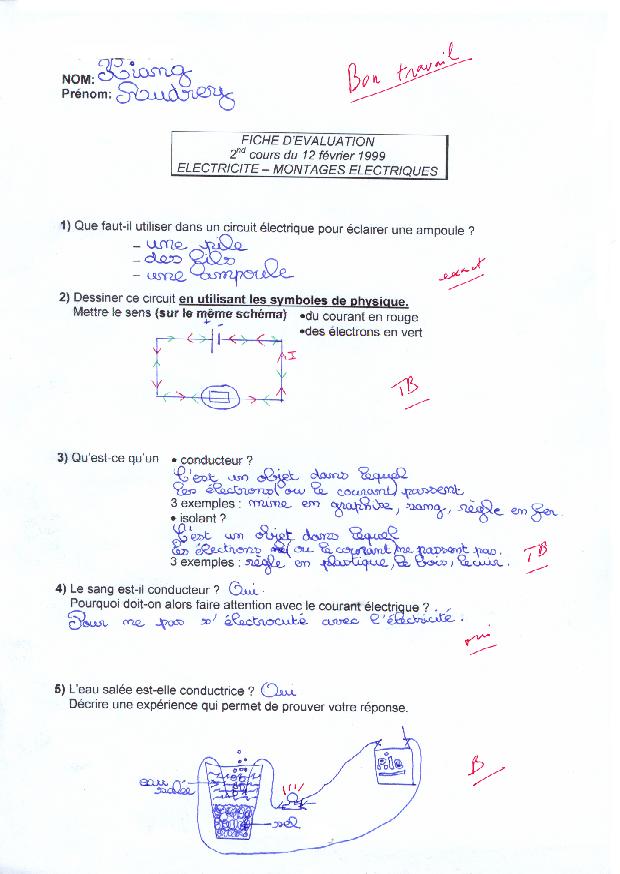 NOM: Kiang
Prénom: Audrey
Bon travail
FICHE D'EVALUATION
2nd cours du 12 février 1999
ELECTRICITE – MONTAGES ELECTRIQUES
1) Que faut-il utiliser dans un circuit électrique pour éclairer une ampoule ?
– une pile
– des fils
– une lampoule
exact
2) Dessiner ce circuit en utilisant les symboles de physique.
Mettre le sens (sur le même schéma) •du courant en rouge
•des électrons en vert
+ -
I
TB
3) Qu'est-ce qu'un • conducteur ?
C'est un objet dans lequel
les électrons (ou le courant) passent
3 exemples : mine en graphite, sang, règle en fer.
• isolant ?
C'est un objet dans lequel
les électrons (ou le courant) ne passent pas.
3 exemples : règle en plastique, le bois, le cuir.
TB
4) Le sang est-il conducteur ? Oui.
Pourquoi doit-on alors faire attention avec le courant électrique ?
Pour ne pas s'électrocuté avec l'électricité.
oui
5) L'eau salée est-elle conductrice ? Oui
Décrire une expérience qui permet de prouver votre réponse.
Pile
eau salée
sel
B